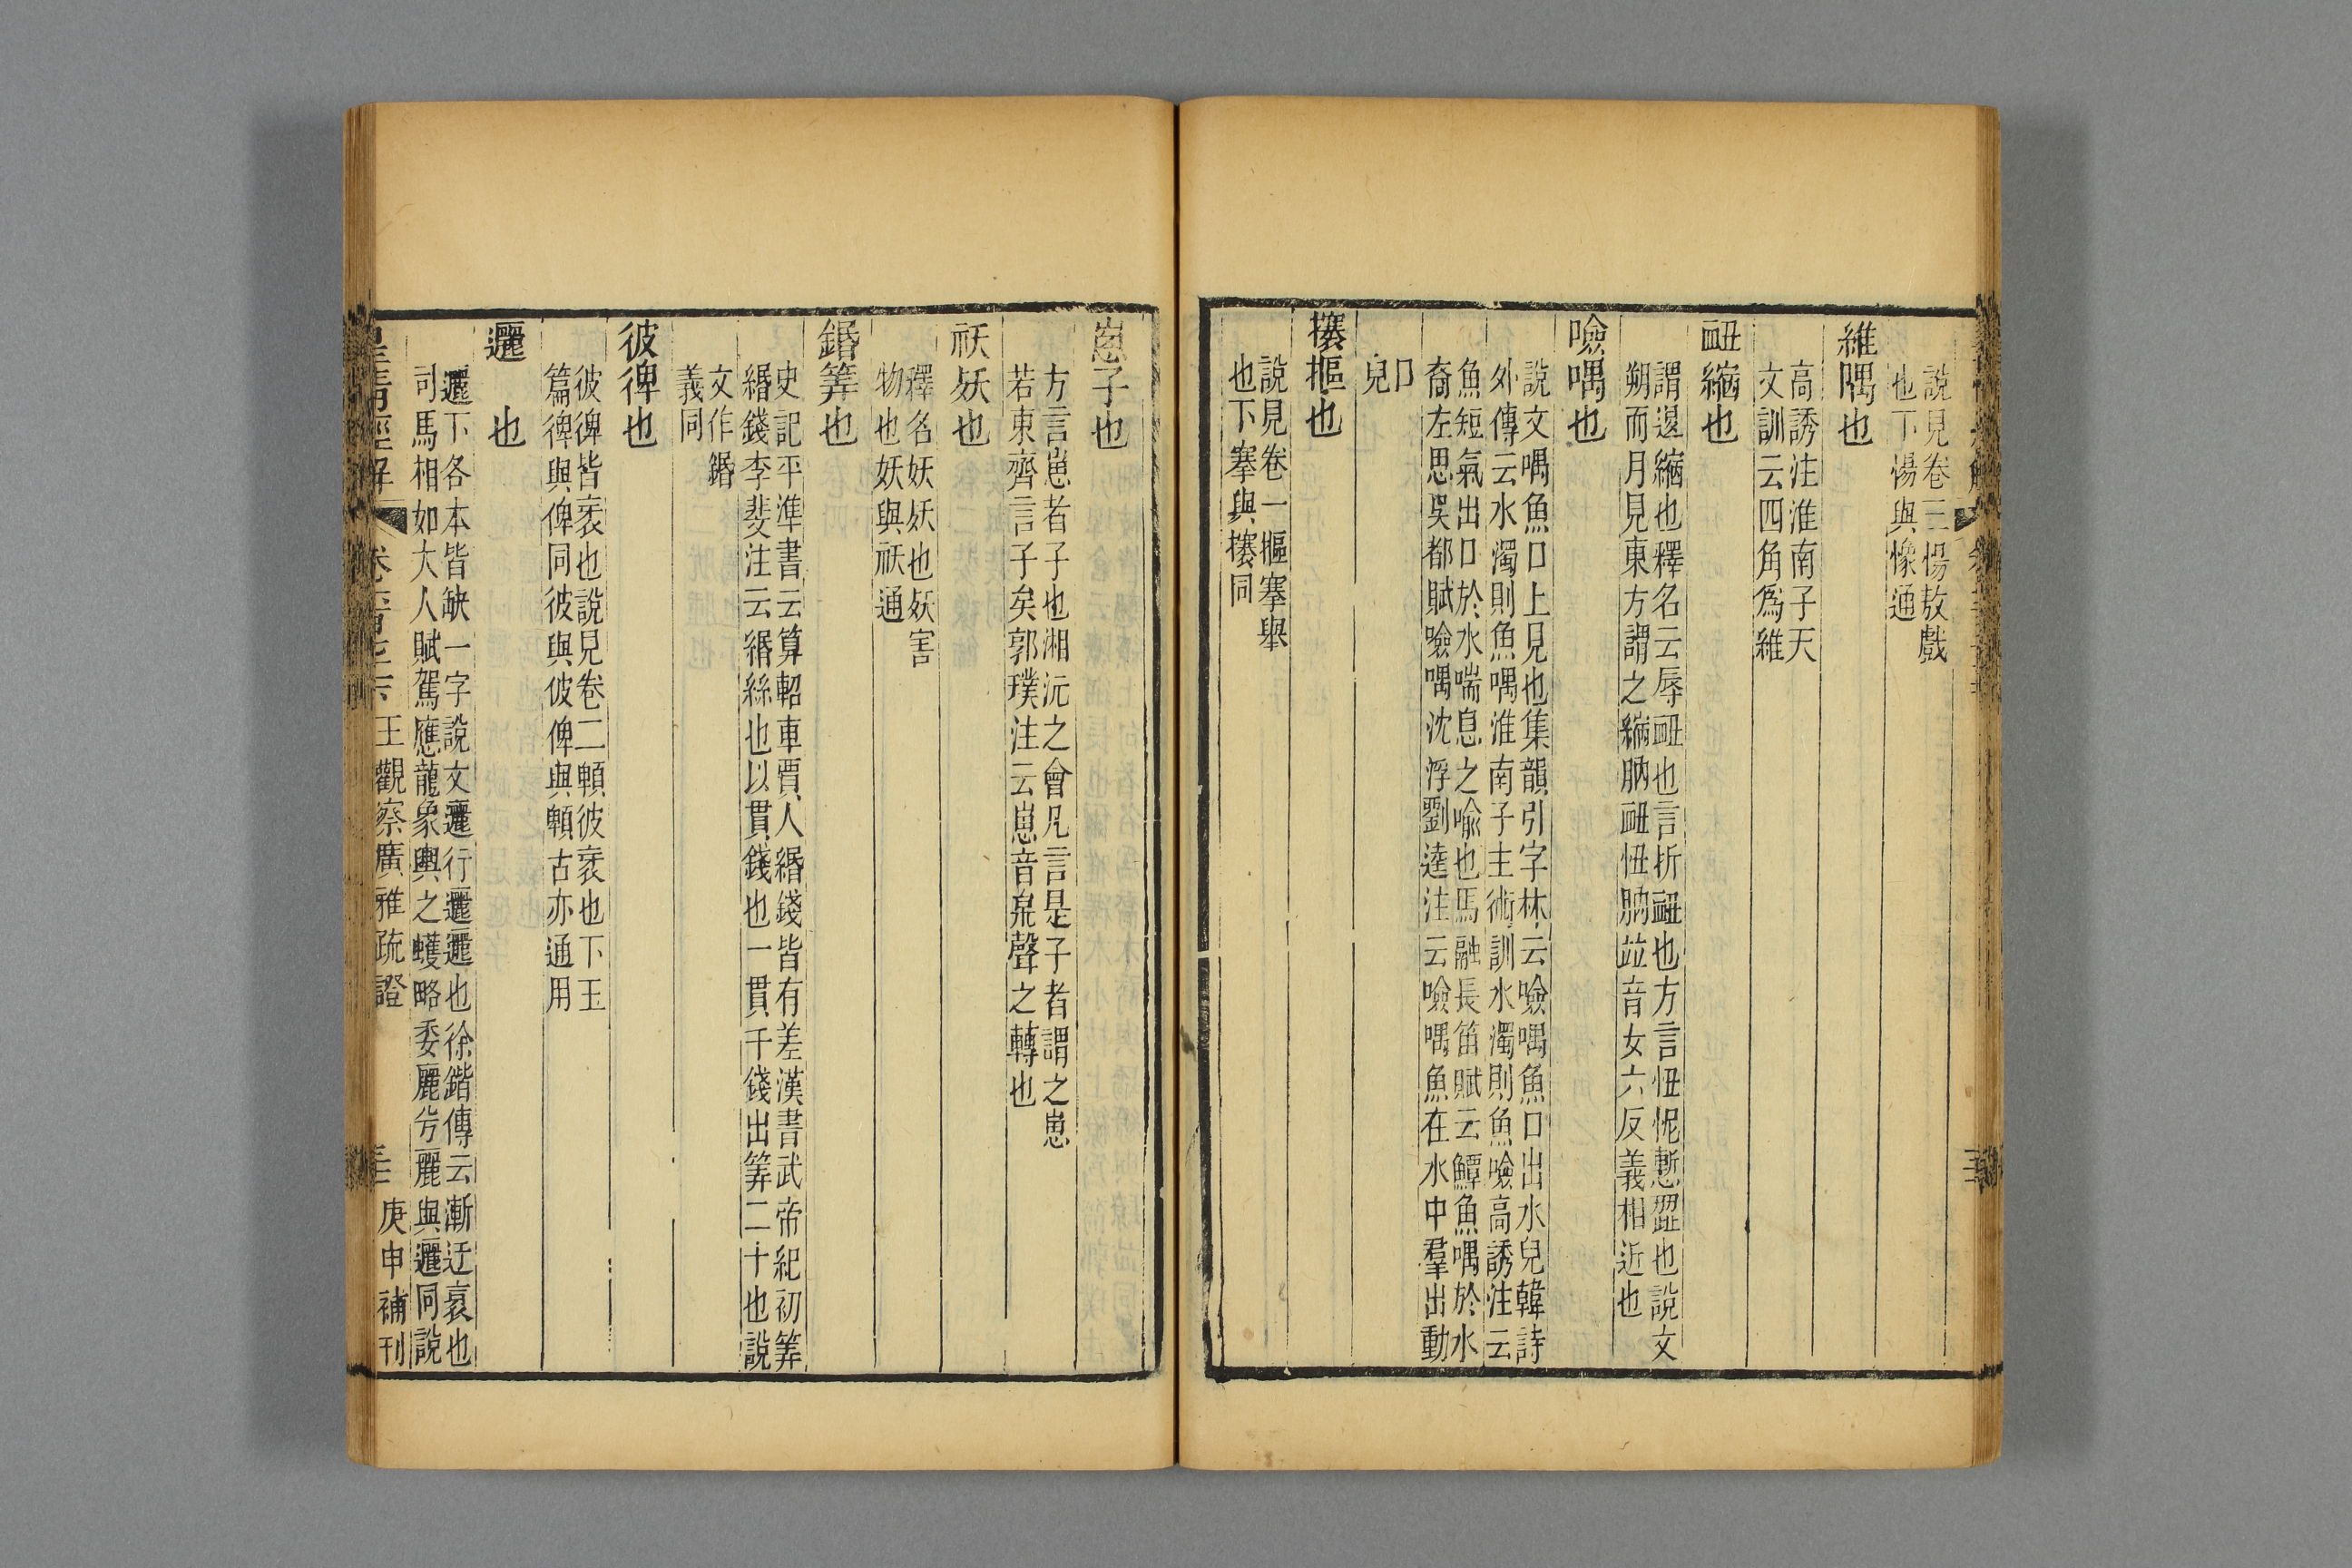 說見卷三愓敖戲
也下愓與憿通
維隅也
高誘注淮南子天
文訓云四角爲維
衄縮也
謂退縮也釋名云辱衄也言折衄也方言忸怩慙歰也說文
朔而月見東方謂之縮朒衄忸朒竝音女六反義相近也
噞喁也
說文喁魚口上見也集韻引字林云噞喁魚口出水皃韓詩
外傳云水濁則魚喁淮南子主術訓水濁則魚噞高誘注云
魚短氣出口於水喘息之喻也馬融長笛賦云鱏魚喁於水
裔左思吳都賦噞喁沈浮劉逵注云噞喁魚在水中羣出動
口
皃
攐摳也
說見卷一摳搴舉
也下搴與攐同
崽子也
方言崽者子也湘沅之會凡言是子者謂之崽
若東齊言子矣郭璞注云崽音枲聲之轉也
祅妖也
釋名妖妖也妖害
物也妖與祅通
鍲筭也
史記平準書云算軺車賈人緡錢皆有差漢書武帝紀初筭
緡錢李斐注云緡絲也以貫錢也一貫千錢出筭二十也說
文作鍲
義同
彼俾也
彼俾皆衺也說見卷二頼彼衺也下玉
篇俾與俾同彼與佊俾與頼古亦通用
邐　也
邐下各本皆缺一字說文邐行邐邐也徐鍇傳云漸迂衺也
司馬相如大人賦駕應龍象輿之蠖略委麗兮麗與邐同說
皇清經解　王觀察廣雅疏證　庚申補刊